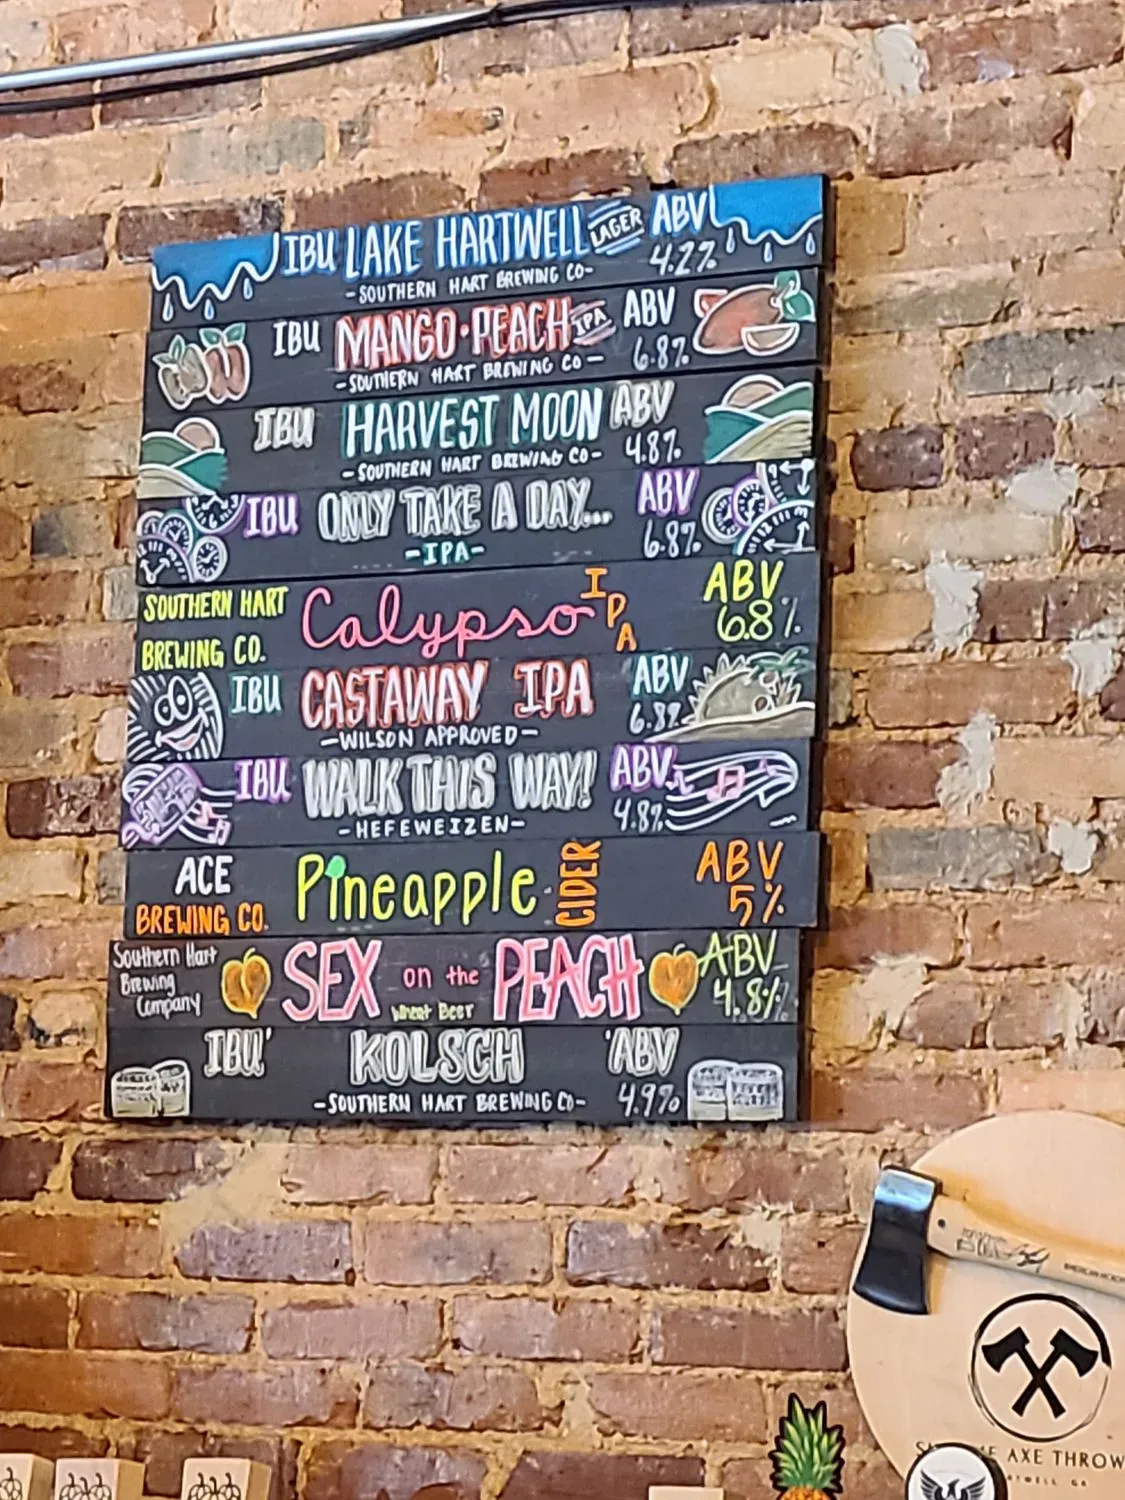 IBU LAKE HARTWELL LAGER ABV
-SOUTHERN HART BREWING CO- 4.2%
IBU MANGO·PEACH IPA ABV
-SOUTHERN HART BREWING CO- 6.8%
IBU HARVEST MOON ABV
-SOUTHERN HART BREWING CO- 4.8%
IBU ONLY TAKE A DAY... ABV
-IPA- 6.8%
SOUTHERN HART Calypso IPA ABV
BREWING CO. 6.8%
IBU CASTAWAY IPA ABV
-WILSON APPROVED- 6.8%
IBU WALK THIS WAY! ABV
-HEFEWEIZEN- 4.8%
ACE Pineapple CIDER ABV
BREWING CO. 5%
Southern Hart SEX on the PEACH ABV
Brewing
Company Wheat Beer 4.8%
IBU KOLSCH ABV
-SOUTHERN HART BREWING CO- 4.9%
AXE THROW